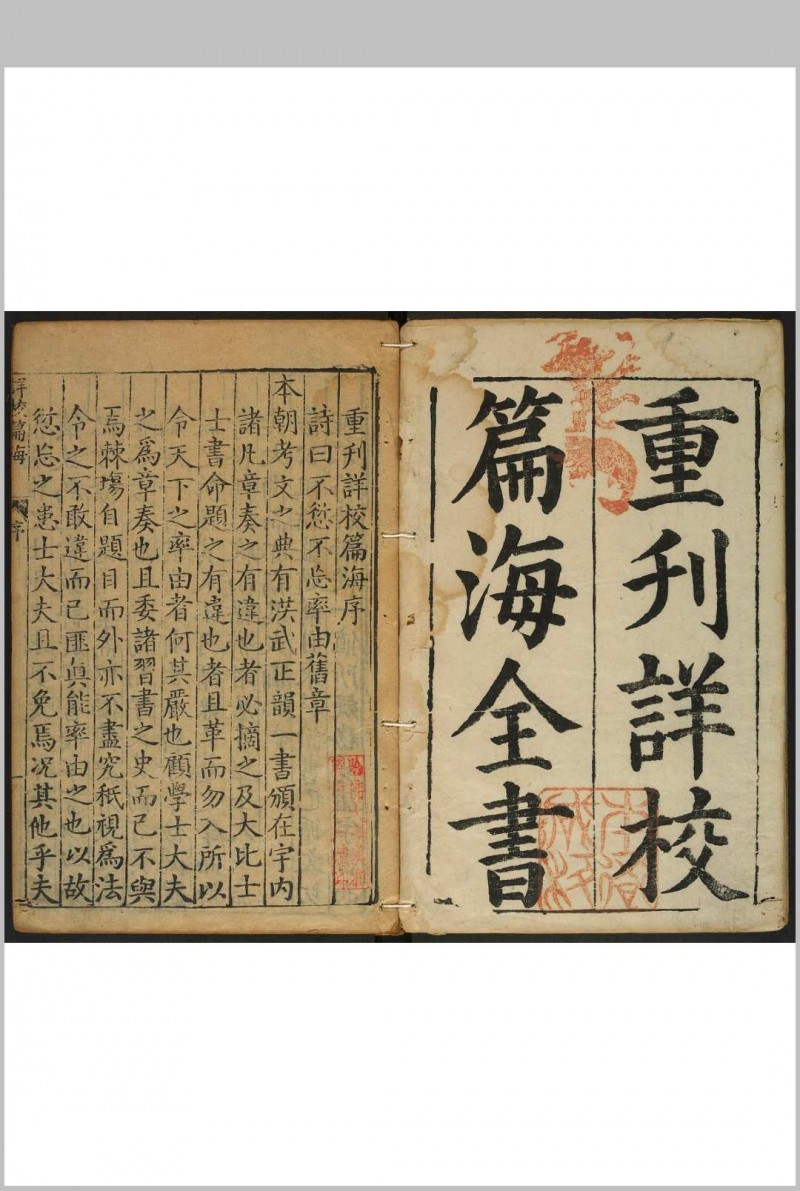 重刊詳校
篇海全書
重刊詳校篇海序
詩曰不愆不忘率由舊章
本朝考文之典有洪武正韻一書頒在宇內
諸凡章奏之有違也者必摘之及大比士
士書命題之有違也者且革而勿入所以
令天下之率由者何其嚴也顧學士大夫
之爲章奏也且委諸習書之史而已不與
焉棘場自題目而外亦不盡究秖視爲法
令之不敢違而已匪眞能率由之也以故
愆忘之患士大夫且不免焉况其他乎夫
詳校篇海
序